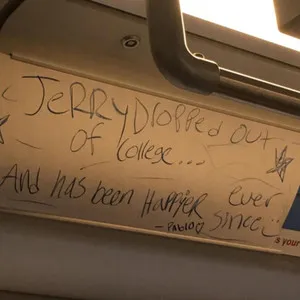 JeRRY DROPPed out
of College...
And has been HAPPiER ever
since..
- PABLO ♡
s your